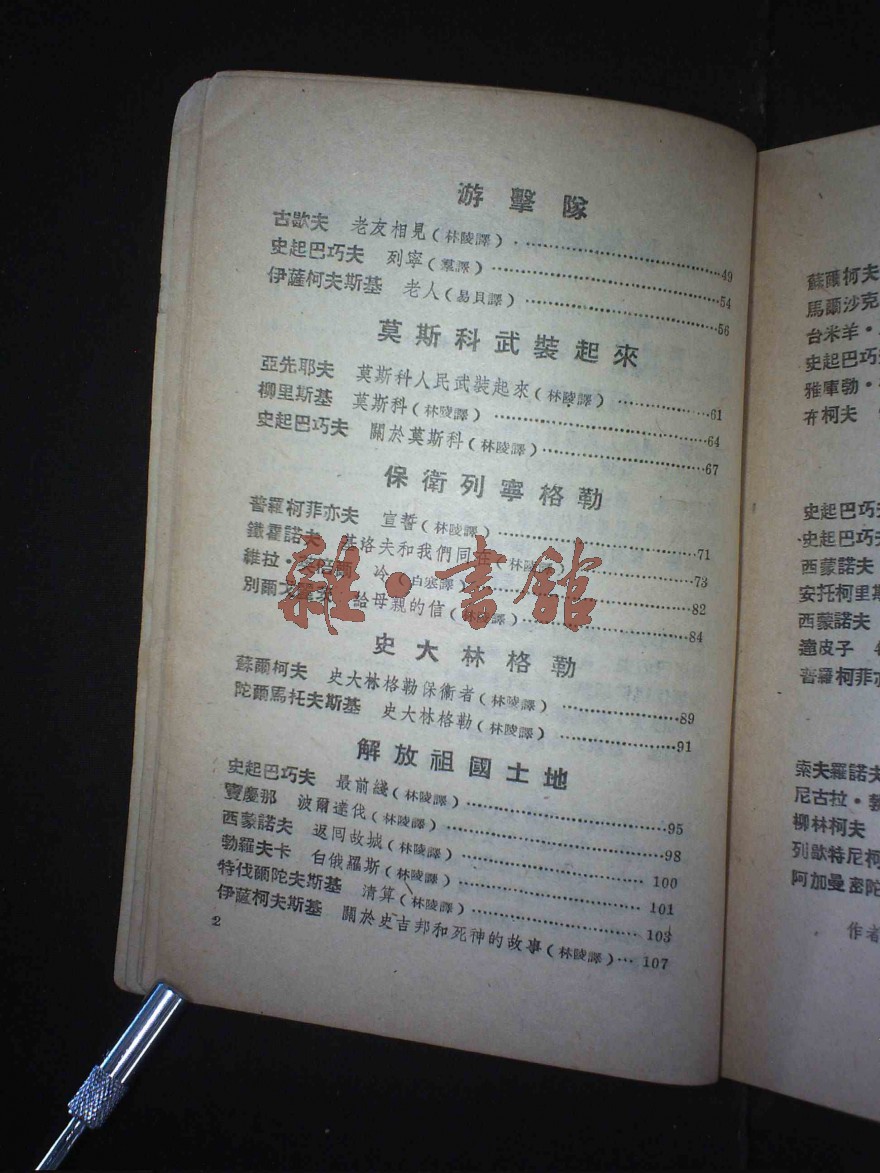 游擊隊
古歇夫 老友相見(林陵譯)·····49
史起巴巧夫 列寧(羣譯)·····54
伊薩柯夫斯基 老人(易貝譯)·····56
莫斯科武裝起來
亞先耶夫 莫斯科人民武裝起來(林陵譯)·····61
柳里斯基 莫斯科(林陵譯)·····64
史起巴巧夫 關於莫斯科(林陵譯)·····67
保衛列寧格勒
普羅柯菲亦夫 宣誓(林陵譯)·····71
鐵霍諾夫 基洛夫和我們同在(林陵譯)·····73
維拉· 冷(白寒譯)·····82
別爾戈 給母親的信(林陵譯)·····84
史大林格勒
蘇爾柯夫 史大林格勒保衛者(林陵譯)·····89
陀爾馬托夫斯基 史大林格勒(林陵譯)·····91
解放祖國土地
史起巴巧夫 最前綫(林陵譯)·····95
竇慶那 波爾達伐(林陵譯)·····98
西蒙諾夫 返囘故城(林陵譯)·····100
勃羅夫卡 白俄羅斯(林陵譯)·····101
特伐爾陀夫斯基 清算(林陵譯)·····103
伊薩柯夫斯基 關於史吉邦和死神的故事(林陵譯)··· 107
2
雜·書館
蘇爾柯夫
馬爾沙克
台米羊·
史起巴巧
雅庫勃·
布柯夫
史起巴巧
史起巴巧
西蒙諾夫
安托柯里斯
西蒙諾夫
達皮子
普羅柯菲亦
索夫羅諾夫
尼古拉·
柳林柯夫
列歇特尼柯
阿加曼密陀
作者